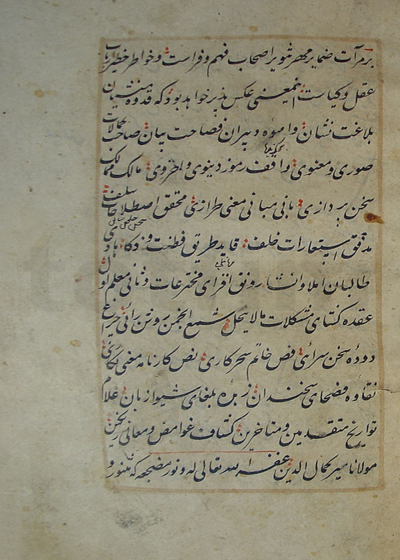 بر مرآت ضمایر مهر تنویر اصحاب فهم و فراست و خواطر خطیر ارباب
عقل و کیاست اینمعنی عکس پذیر خواهد بود که قدوه منشیان
بلاغت نشان و اسوه دبیران فصاحت بیان صاحب کمالات
صوری و معنوی واقف رموز دنیوی و اخروی مالک ممالک
سخن پردازی بانی مبانی معنی طرازی محقق اصطلاحات سلف
مدقق استعارات خلف قاید طریق فطنت و ذکا هادی
طالبان املا و انشا رونق افزای مخترعات و ثانی معلم اول
عقده کشای مشکلات لاینحل شمع انجمن
دوده سخن سرائی فص خاتم سحرکاری نص کارنامه معنی
نقاوه فصحای سخندان زبده بلغای شیوا زبان علام
تواریخ متقدمین و متاخرین کشاف غوامض و معانی
مولانا میر کمال الدین عفی الله تعالی له و نور مضجعه که منثور و